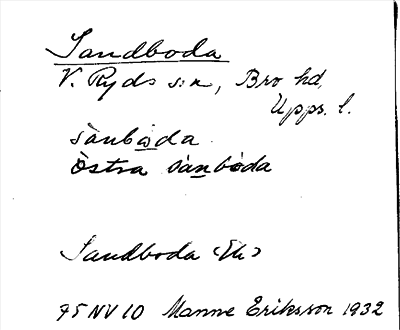 Sandboda
V. Ryds s:n, Bro hd,
Upps. l.
sànbωda
Östra sànbωda
Sandboda (Ek)
75 NV 10 Manne Eriksson 1932